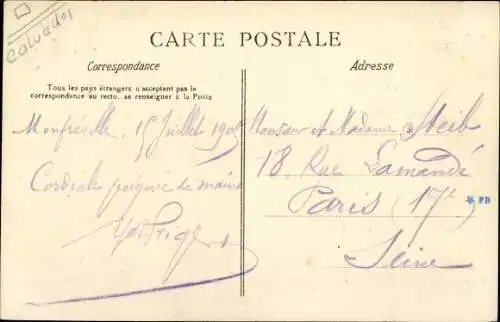 Calvados
CARTE POSTALE
Correspondance
Adresse
Tous les pays étrangers n'acceptent pas la
correspondance au recto, se renseigner à la Poste
Monfréville, 15 Juillet 1905
Cordiale poignée de mains
Monsieur et Madame Steib
18, Rue Lamandé
Paris (17e)
Seine
PB